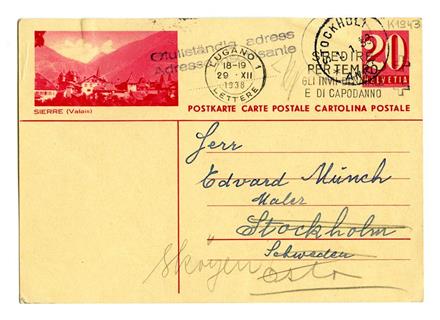 K1943
Ofullständig adress
Adresse insuffisante
LUGANO 1
18-19
29·XII
1938
LETTERE
STOCKHOLM
SPEDIRE
PER TEMPO
GLI INVII DI NATALE
E DI CAPODANNO
20
HELVETIA
SIERRE (Valais)
POSTKARTE CARTE POSTALE CARTOLINA POSTALE
Herr
Edvard Münch
Maler
Stockholm
Schweden
Skøyen Oslo